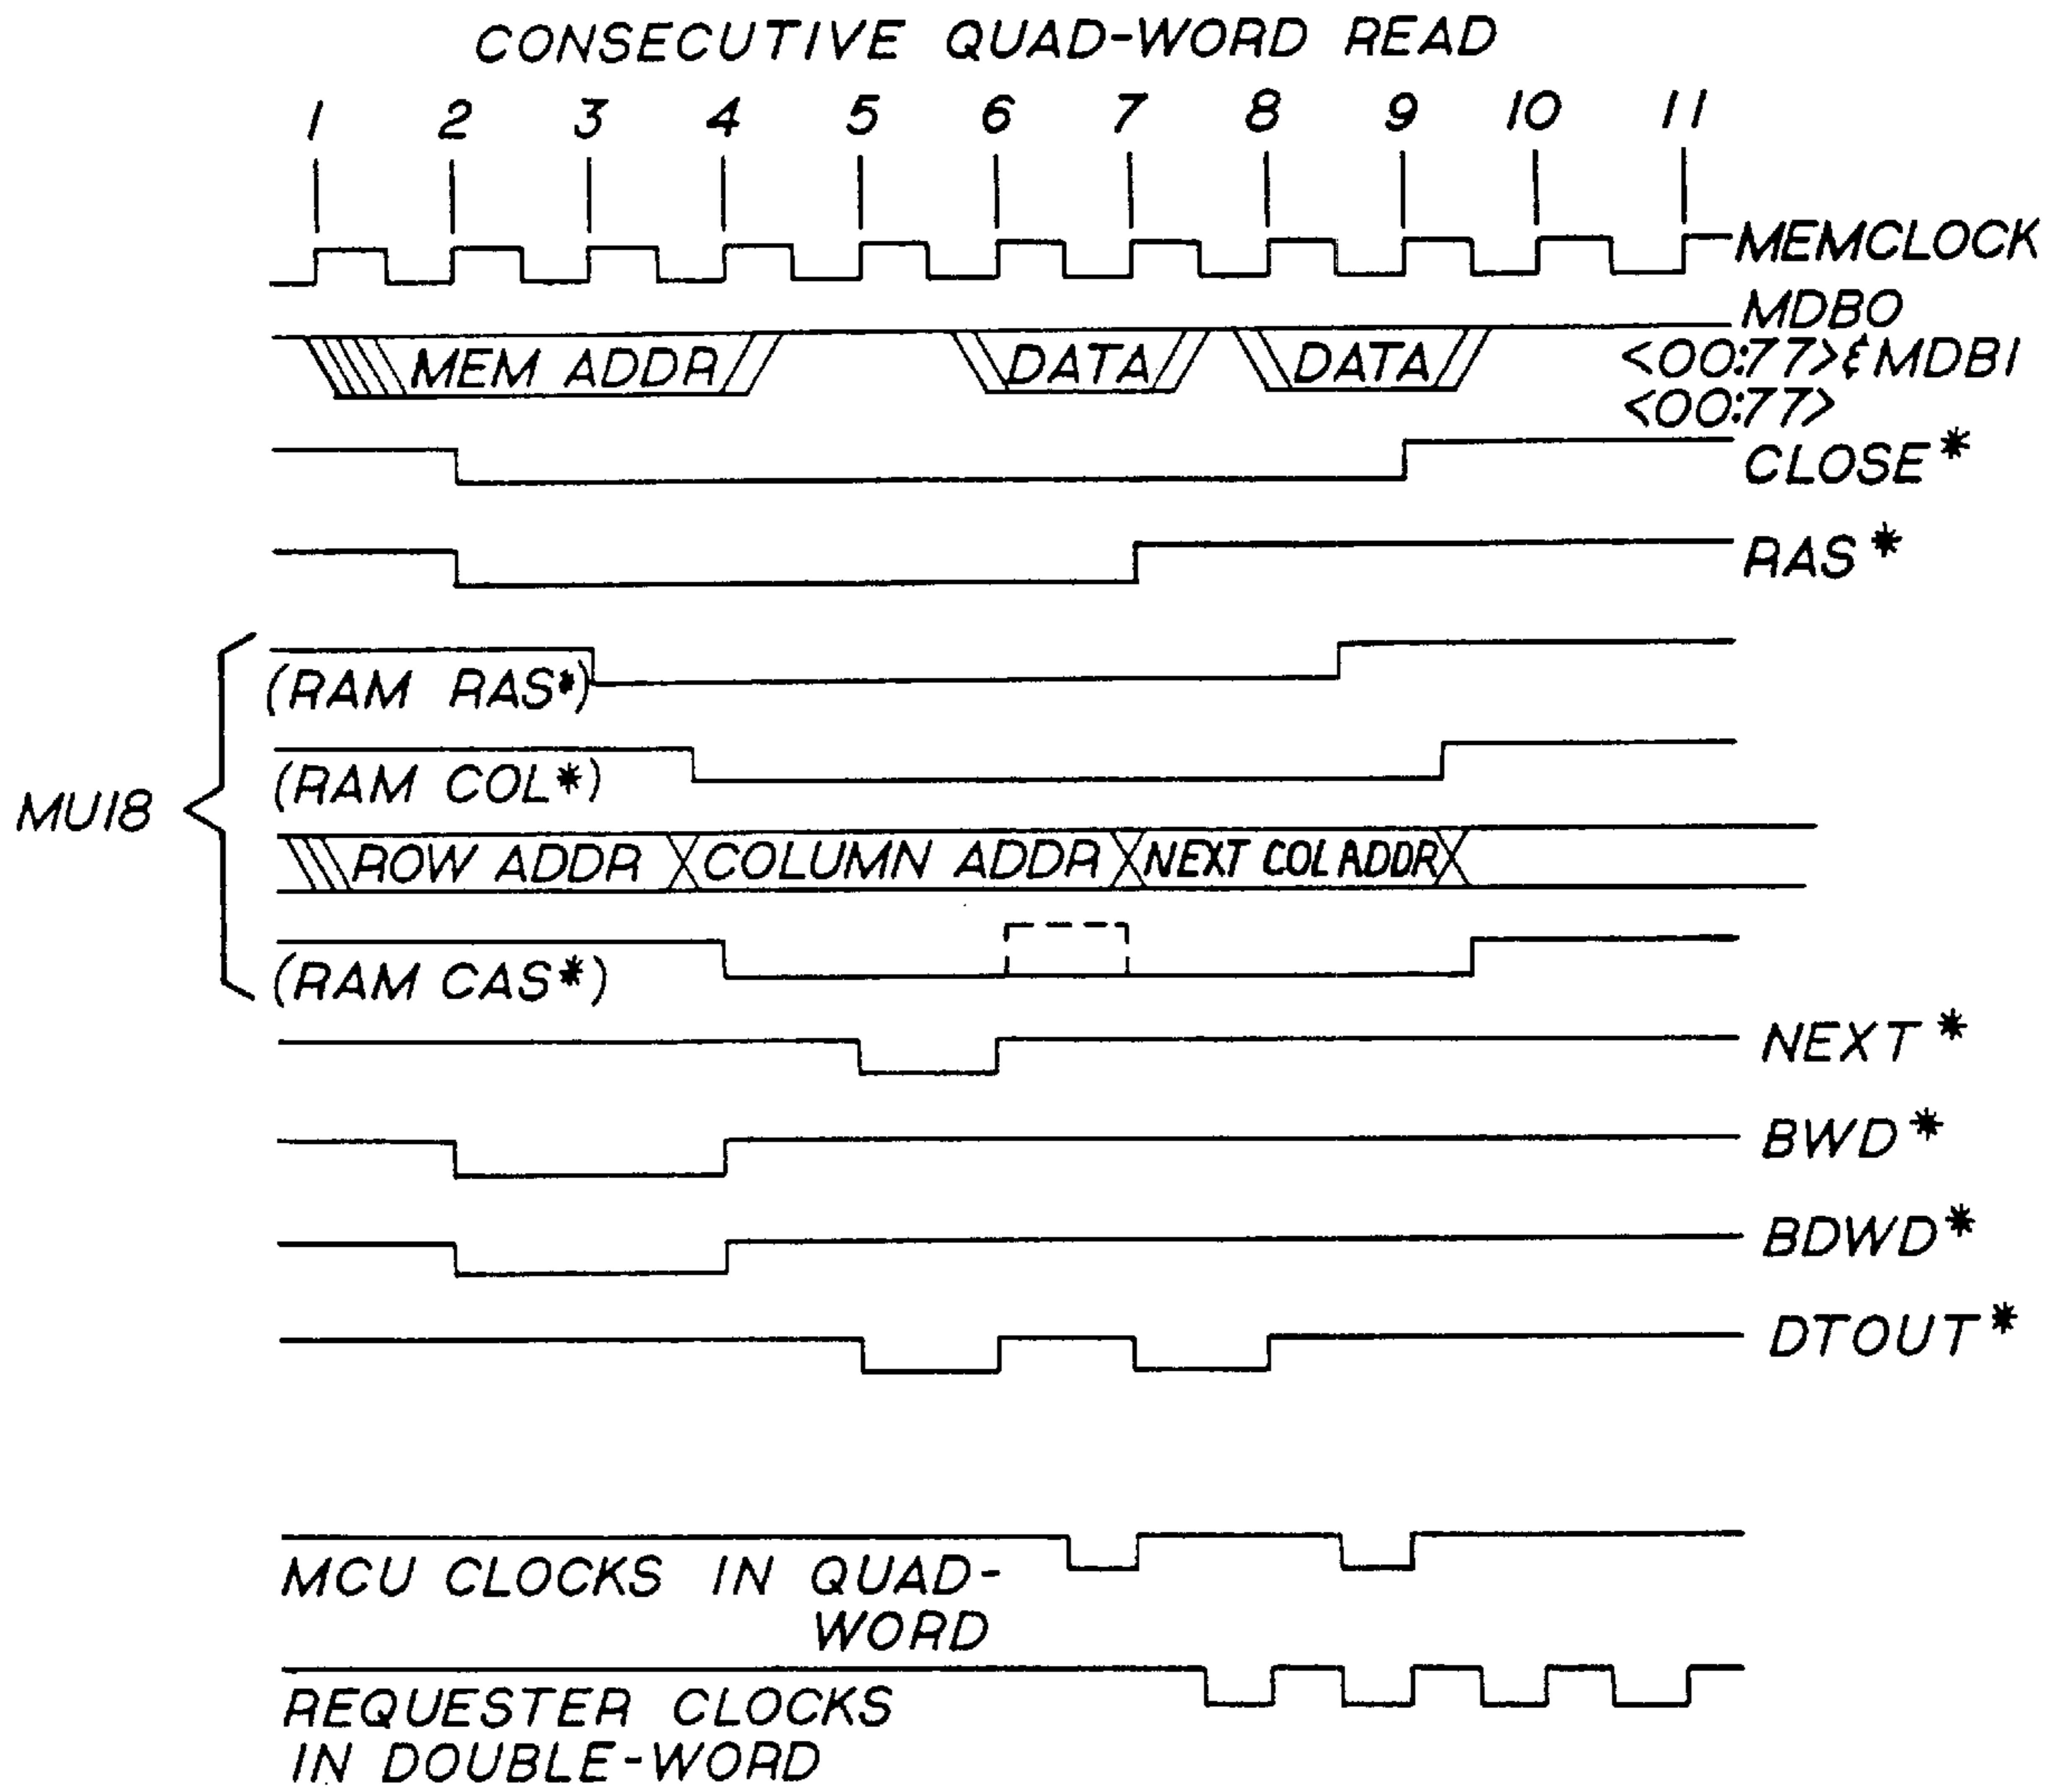 CONSECUTIVE QUAD-WORD READ
1 2 3 4 5 6 7 8 9 10 11
MEMCLOCK
MDBO
MEM ADDR DATA DATA <00:77>&MDBI
<00:77>
CLOSE*
RAS*
(RAM RAS*)
(RAM COL*)
MU18
ROW ADDR COLUMN ADDR NEXT COL ADDR
(RAM CAS*)
NEXT*
BWD*
BDWD*
DTOUT*
MCU CLOCKS IN QUAD-
WORD
REQUESTER CLOCKS
IN DOUBLE-WORD